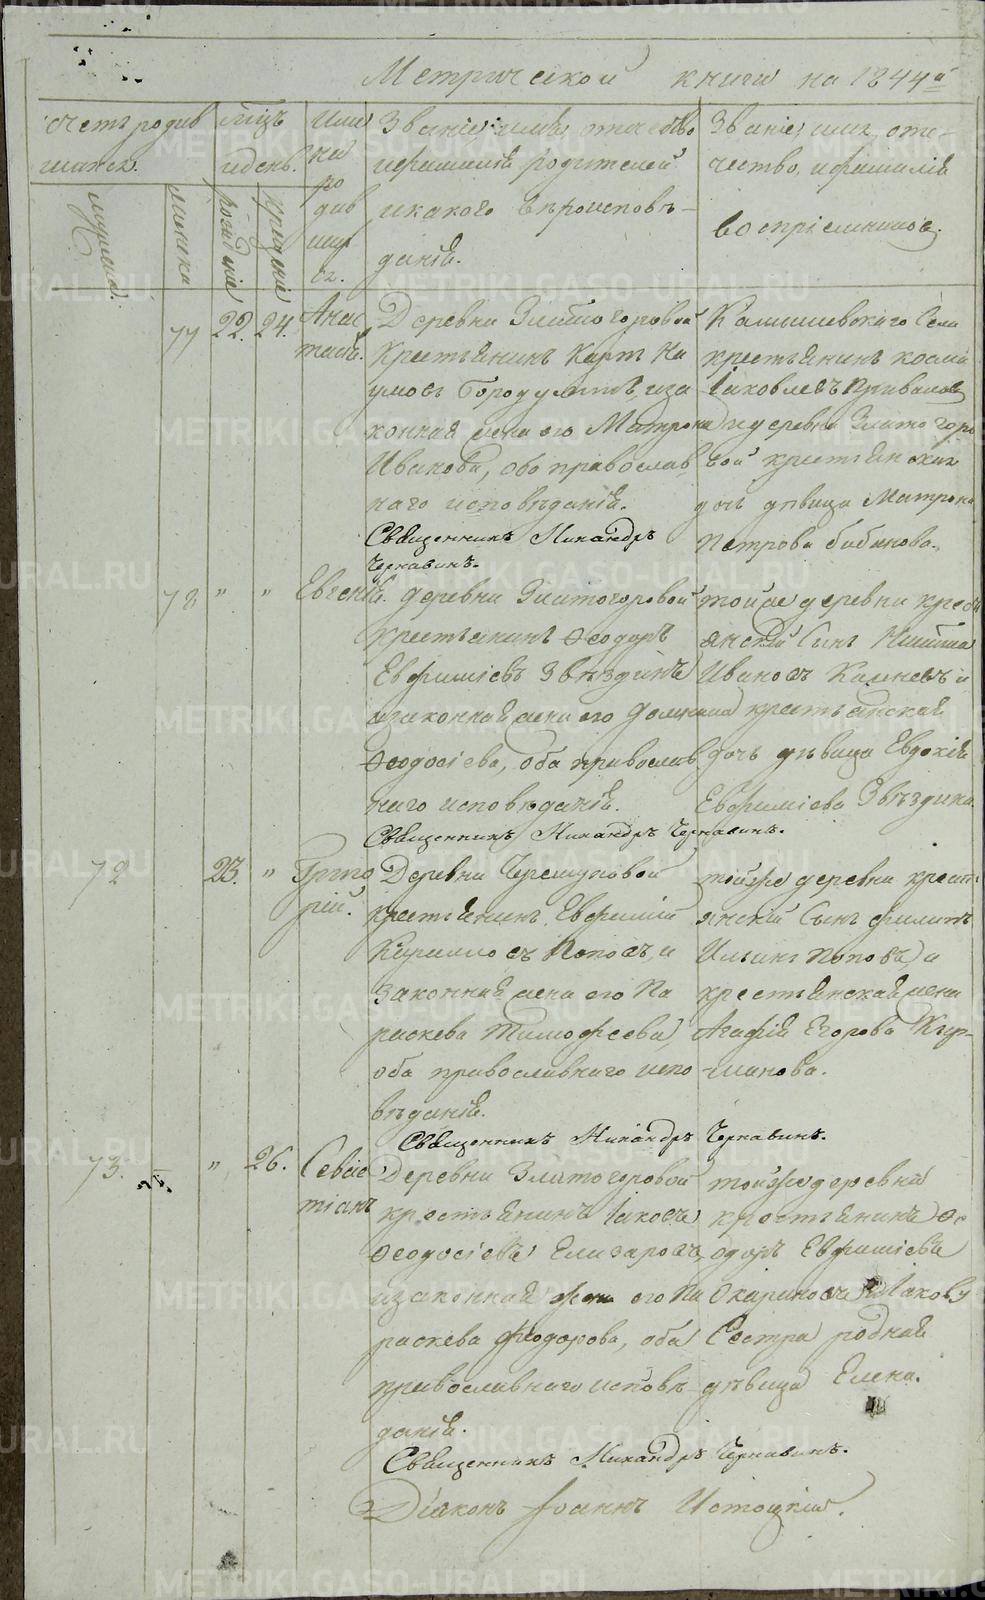 Метрической книги на 1844й
счетъ родив
шихся.
мужеска.
женска
мѣсяцъ
и день.
рожденіе
крещеніе
Име
на
ро
див
ших
ся.
Званіе, имя, отечество
и фамилія родителей
и какого вѣроисповѣ-
данія.
Званіе, имя, оте-
чество, и фамилія
воспріемниковъ.
77 22. 24. Анас
тасія.
Деревни Златогоровой
крестьянинъ Карпъ На
умовъ и за
конная жена его Матрона
Иванова, обо православ
наго исповѣданія.
Священникъ Никандръ
Чернавинъ.
Камышевскаго Села
крестьянинъ Косма
Іаковлевъ Приваловъ
и деревни Златогоро
вой крестьянская
дочь дѣвица Матрона
Петрова Бабинова.
78 " " Евгенія.
деревни Златогоровой
крестьянинъ Ѳеодоръ
Евфиміевъ Звѣздинъ
и законная жена его Домника
Ѳеодосіева, оба православ
наго исповѣданія.
Священникъ Никандръ Чернавинъ.
тойже деревни кресть
янскій Сынъ Никита
Ивановъ Каменевъ и
крестьянская
дочь дѣвица Евдокія
Евфиміева Звѣздина.
72 23. " Григо
рій.
Деревни Черемуховой
крестьянинъ Евфимій
Кирилловъ Поповъ, и
законная жена его Па
раскева Тимофеева,
оба православнаго испо
вѣданія.
Священникъ Никандръ Чернавинъ.
тойже деревни кресть
янскій Сынъ Филиппъ
Ильинъ Поповъ и
крестьянская жена
Агафія Егорова Кир-
шанова.
73. " 26. Севас
тіанъ
Деревни Златогоровой
крестьянинъ Іаковъ
Ѳеодосіевъ Елизаровъ,
и законная жена его Па
раскева Феодорова, оба
православнаго исповѣ
данія.
Священникъ Никандръ Чернавинъ.
тойже деревни
крестьянинъ Ѳе
одоръ Евфиміевъ
Окариновъ Іакову
Сестра родная
дѣвица Елена.
Діаконъ Іоаннъ Истоцкій.
METRIKI.GASO-URAL.RU